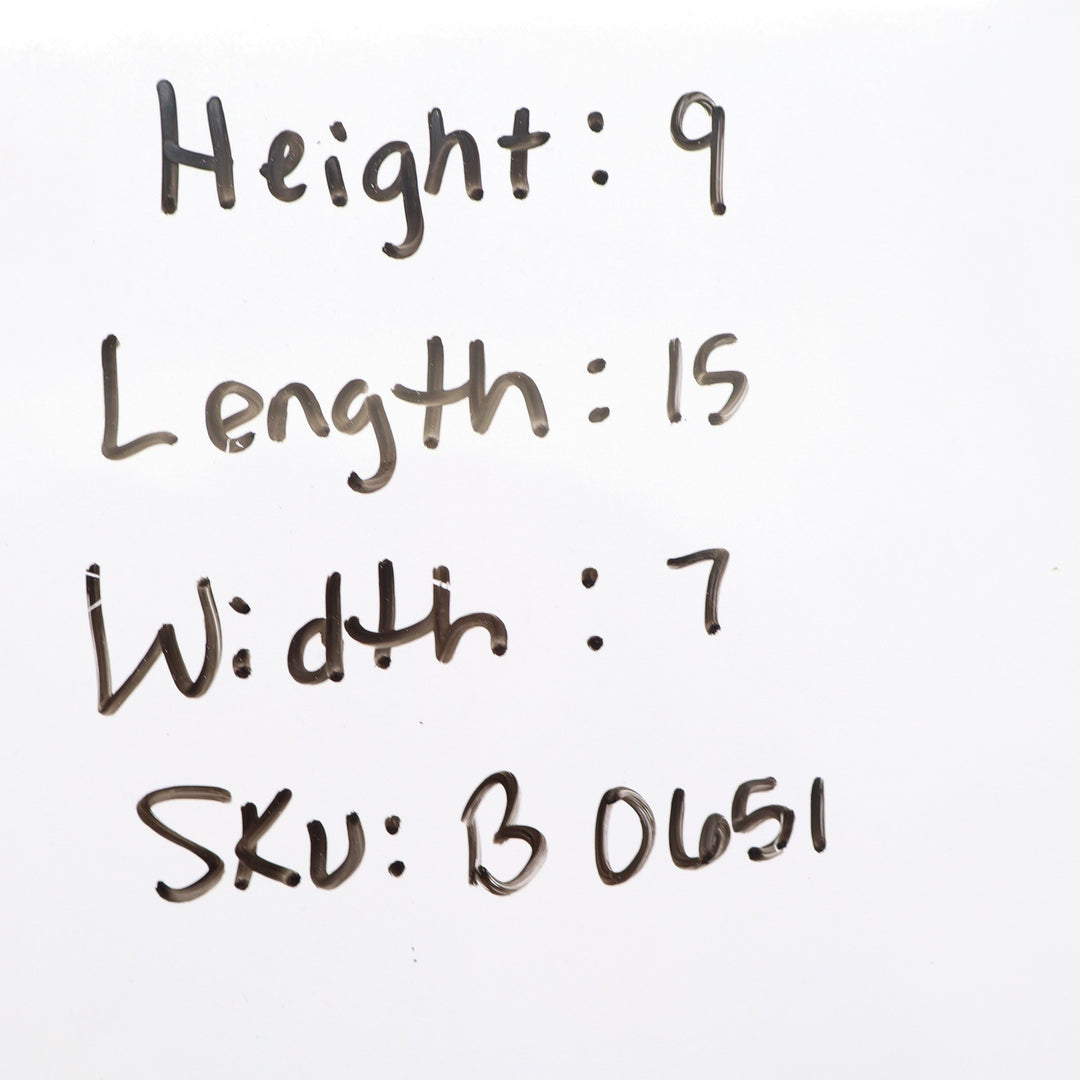 Height: 9
Length: 15
Width: 7
SKU: B 0651